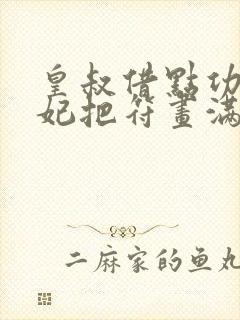 皇叔借點功
妃把符畫滿
二麻家的鱼丸